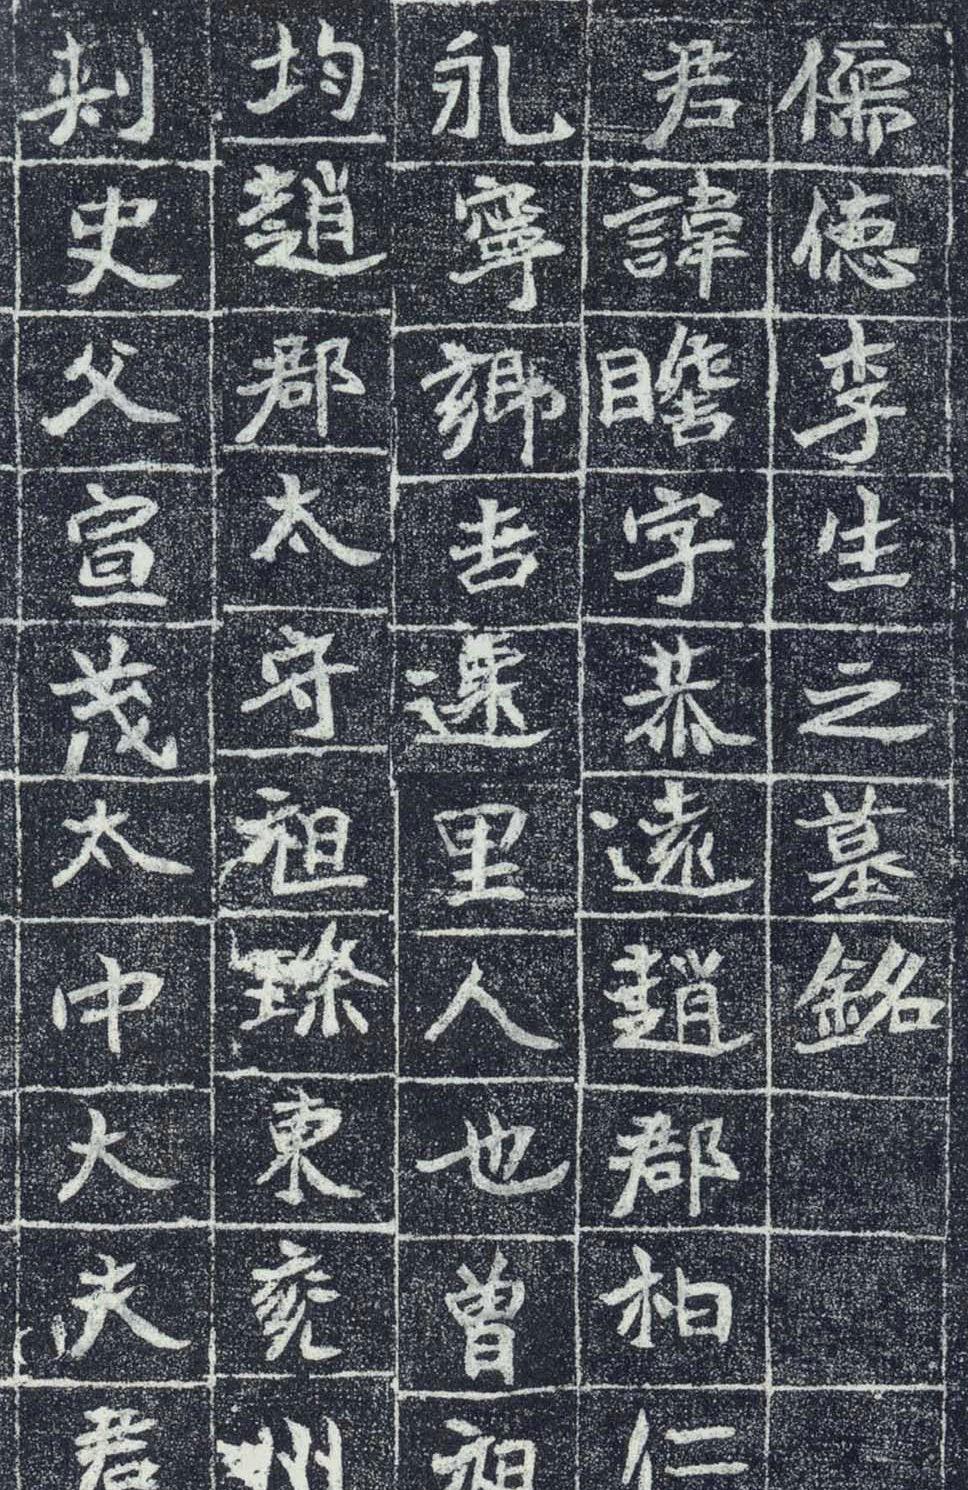 儒德李生之墓銘
君諱瞻字恭遠趙郡柏仁
永寧鄉吉遷里人也曾祖
均趙郡太守祖璨東兗州
刺史父宣茂太中大夫君